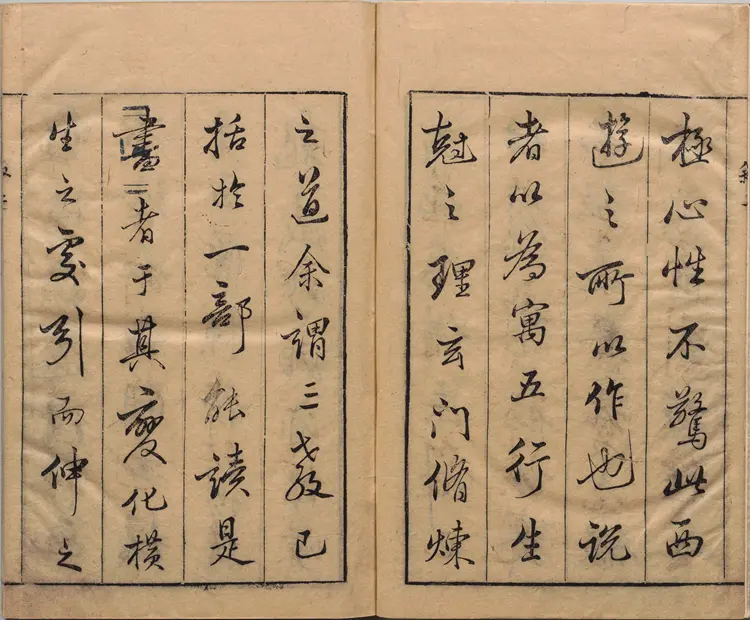 極心性不驚此西
遊之所以作也說
者以為寓五行生
尅之理玄門脩煉
之道余謂三教已
括於一部能讀是
書者于其變化橫
生之處引而伸之